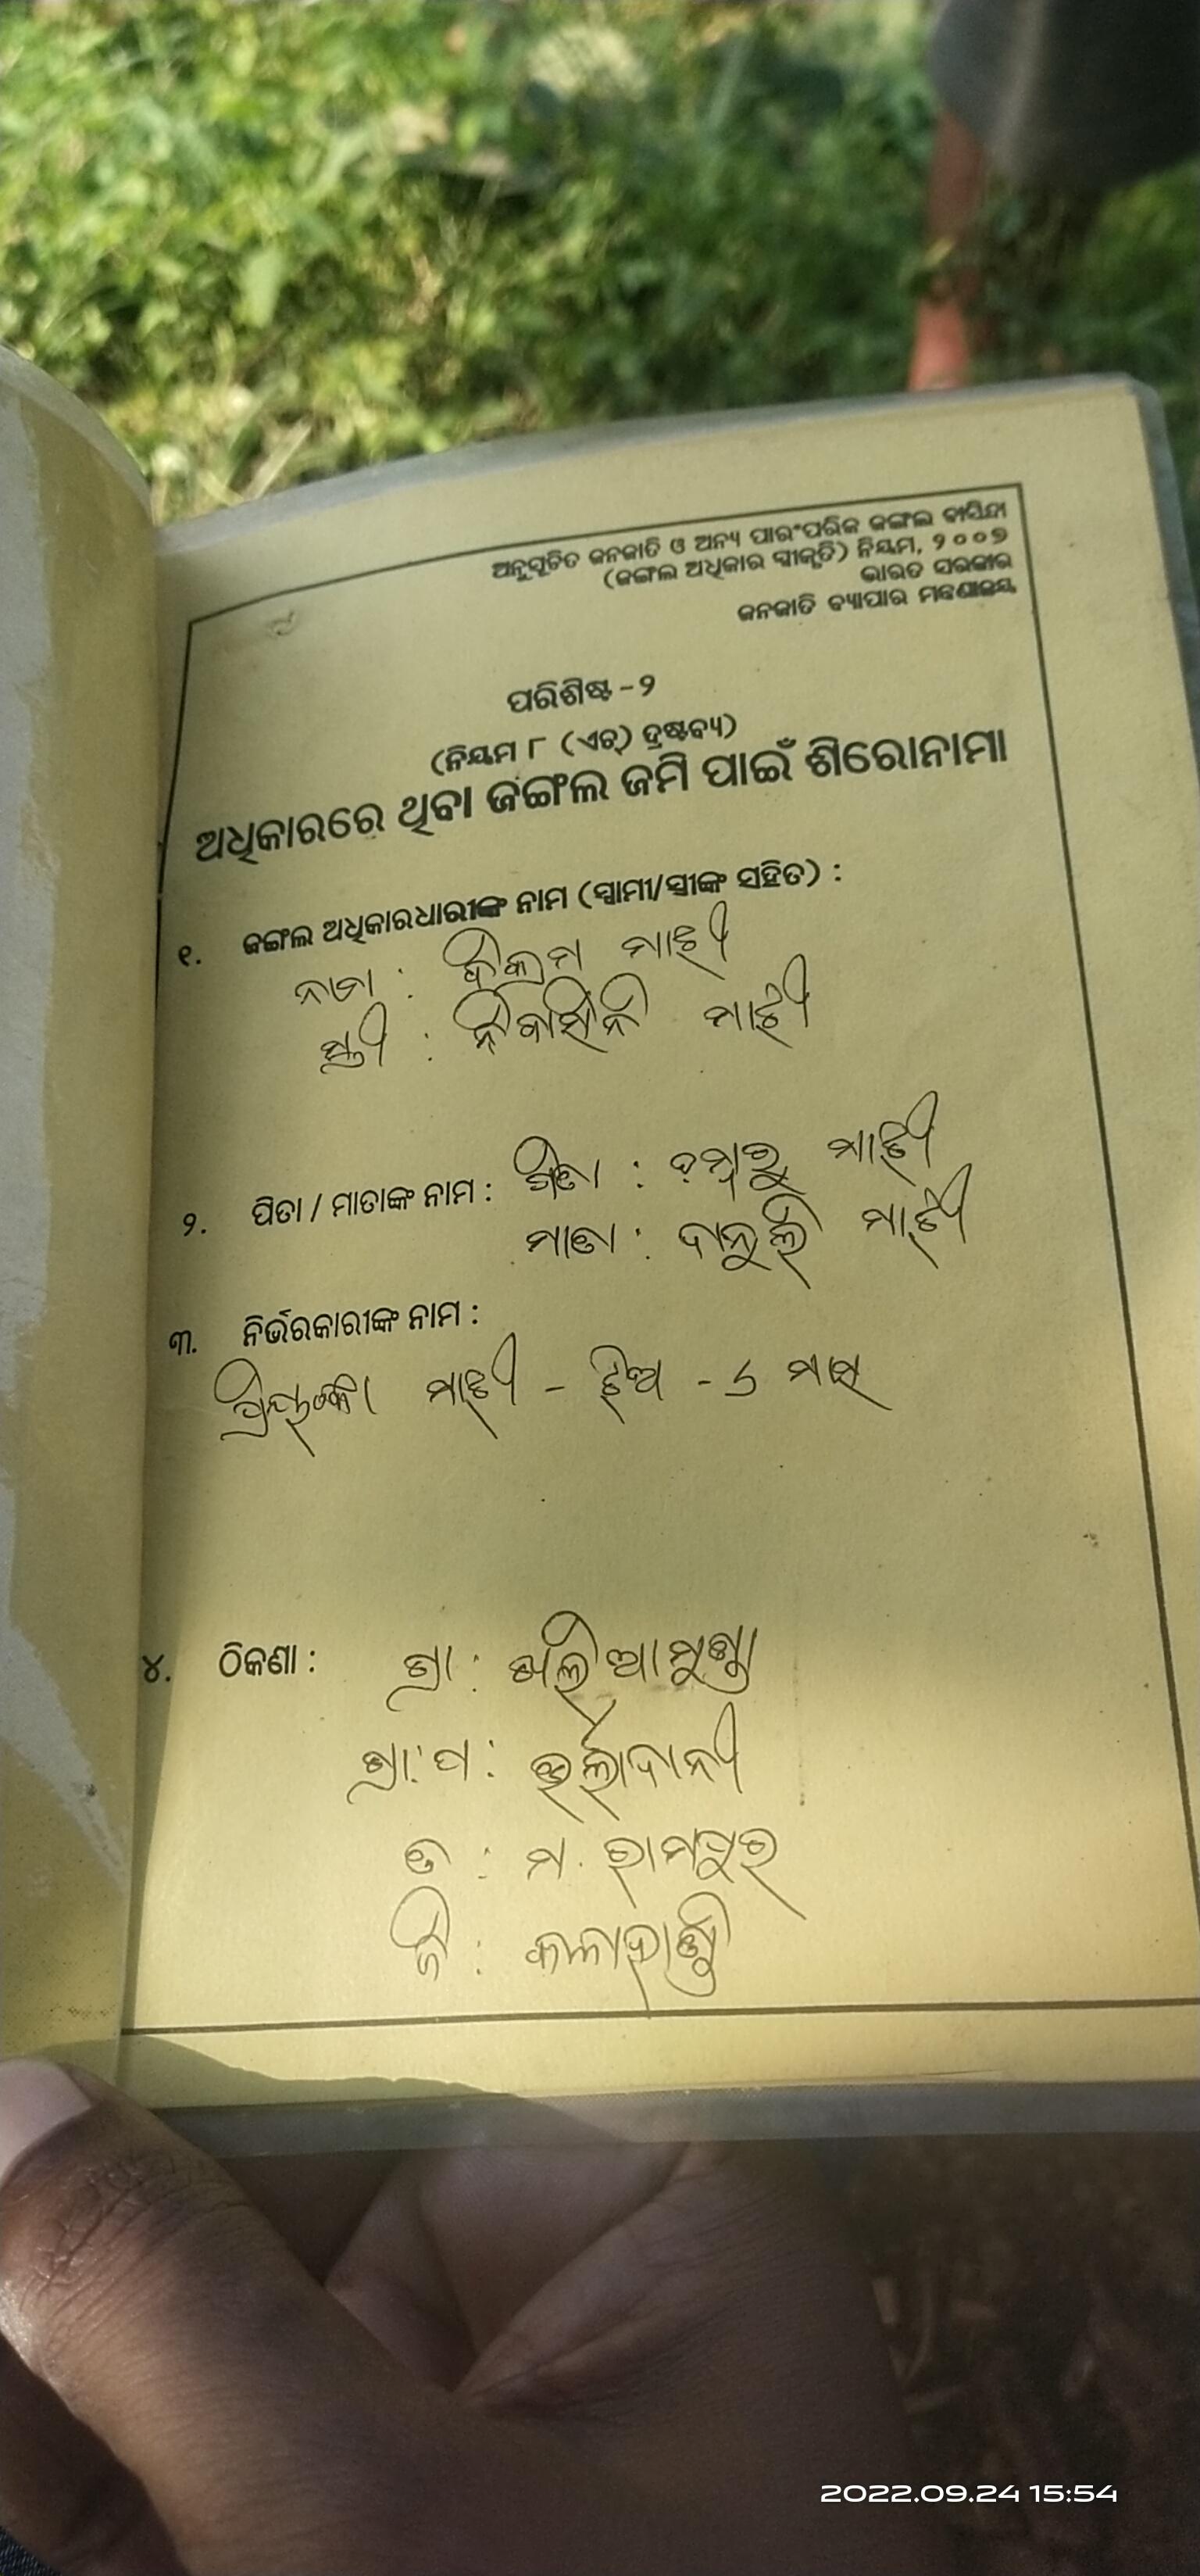 ଅନୁସୂଚିତ ଜନଜାତି ଓ ଅନ୍ୟ ପାରଂପରିକ ଜଙ୍ଗଲ ବାସିନ୍ଦା
(ଜଙ୍ଗଲ ଅଧିକାର ସ୍ୱୀକୃତି) ନିୟମ, ୨୦୦୭
ଭାରତ ସରକାର
ଜନଜାତି ବ୍ୟାପାର ମନ୍ତ୍ରଣାଳୟ
ପରିଶିଷ୍ଟ - ୨
(ନିୟମ ୮ (ଏଚ୍) ଦ୍ରଷ୍ଟବ୍ୟ)
ଅଧିକାରରେ ଥିବା ଜଙ୍ଗଲ ଜମି ପାଇଁ ଶିରୋନାମା
୧. ଜଙ୍ଗଲ ଅଧିକାରଧାରୀଙ୍କ ନାମ (ସ୍ୱାମୀ/ସ୍ତ୍ରୀଙ୍କ ସହିତ) :
ନାମ : ବିକ୍ରମ ମାଝୀ
ସ୍ତ୍ରୀ : ନିବାସିନି ମାଝୀ
୨. ପିତା / ମାତାଙ୍କ ନାମ : ପିତା : ଡମ୍ବରୁ ମାଝୀ
ମାତା : ମାଝୀ
୩. ନିର୍ଭରକାରୀଙ୍କ ନାମ :
ପ୍ରିୟଙ୍କା ମାଝୀ - ଝିଅ - ୬ ମାସ
୪. ଠିକଣା : ଗ୍ରା : ଖଲିଆମୁଣ୍ଡା
ଗ୍ରା.ପ : ଉର୍ଲାଦାନୀ
ତ : ମ. ରାମପୁର
ଜି : କଳାହାଣ୍ଡି
2022.09.24 15:54